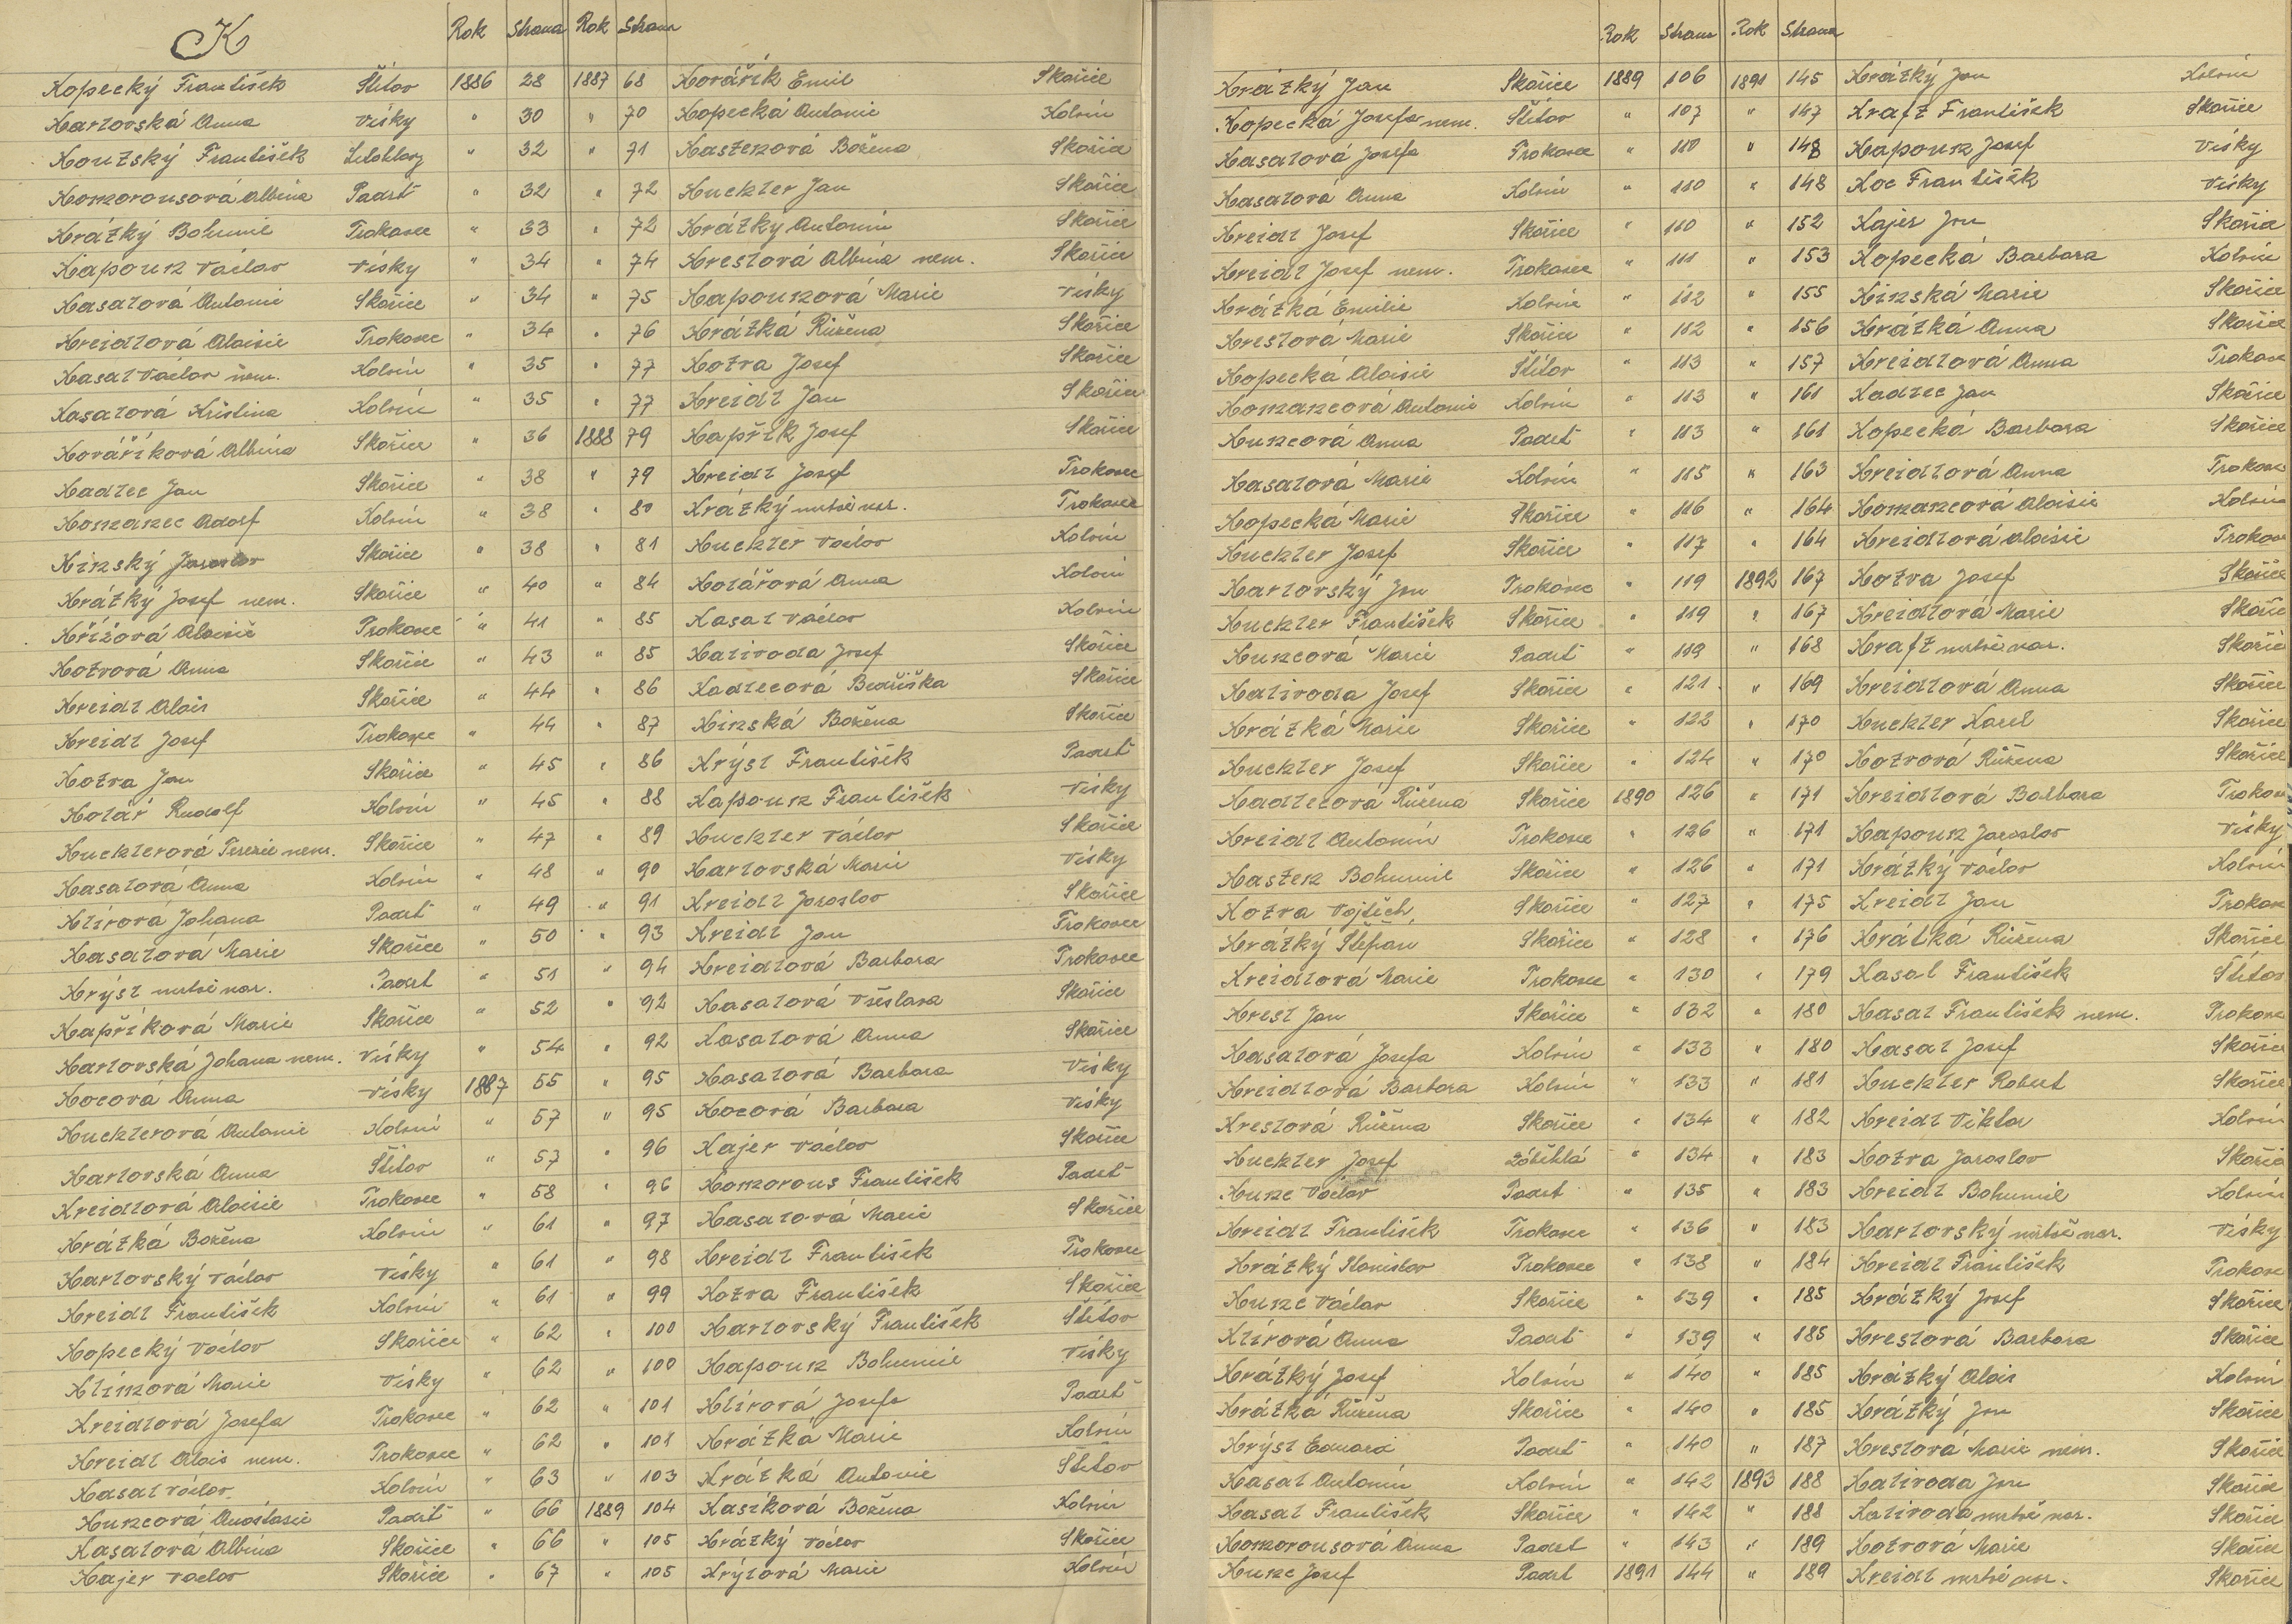 K
Rok Strana Rok Strana
Kopecký František Štítov 1886 28 1887 68 Kovářík Emil Skořice
Karlovská Anna Vísky " 30 " 70 Kopecká Antonie Kolvín
František " 32 " 71 Kaslenová Božena Skořice
Komorousová Albína Padrť " 32 " 72 Kuchler Jan Skořice
Krátký Bohumil Trokavec " 33 " 72 Krátký Antonín Skořice
Kapoun Václav Vísky " 34 " 74 Kreslová Albína nem. Skořice
Kasalová Antonie Skořice " 34 " 75 Kapounová Marie Vísky
Kreidlová Aloisie Trokavec " 34 " 76 Krátká Růžena Skořice
Kasal Václav nem. Kolvín " 35 " 77 Kotva Josef Skořice
Kasalová Kristina Kolvín " 35 " 77 Kreidl Jan Skořice
Kováříková Albína Skořice " 36 1888 79 Kapřík Josef Skořice
Kadlec Jan Skořice " 38 " 79 Kreidl Josef Trokavec
Komanec Adolf Kolvín " 38 " 80 Krátký mrtvě nar. Trokavec
Kinský Jaroslav Skořice " 38 " 81 Kuchler Václav Kolvín
Krátký Josef nem. Skořice " 40 " 84 Kolářová Anna Kolvín
Křížová Aloisie Trokavec " 41 " 85 Kasal Václav Kolvín
Kotvová Anna Skořice " 43 " 85 Kalivoda Josef Skořice
Kreidl Alois Skořice " 44 " 86 Kadlecová Bedřiška Skořice
Kreidl Josef Trokavec " 44 " 87 Kinská Božena Skořice
Kotva Jan Skořice " 45 " 86 Krýsl František Padrť
Kolář Rudolf Kolvín " 45 " 88 Kapoun František Vísky
Kuchlerová Terezie nem. Skořice " 47 " 89 Kuchler Václav Skořice
Kasalová Anna Kolvín " 48 " 90 Karlovská Marie Vísky
Klírová Johana Padrť " 49 " 91 Kreidl Jaroslav Skořice
Kasalová Marie Skořice " 50 " 93 Kreidl Jan Trokavec
Krýsl mrtvě nar. Padrť " 51 " 94 Kreidlová Barbora Trokavec
Kapříková Marie Skořice " 52 " 92 Kasalová Věslava Skořice
Karlovská Johana nem. Vísky " 54 " 92 Kasalová Anna Skořice
Kocová Anna Vísky 1887 55 " 95 Kasalová Barbara Vísky
Kuchlerová Antonie Kolvín " 57 " 95 Kocová Barbara Vísky
Karlovská Anna Štítov " 57 " 96 Kajer Václav Skořice
Kreidlová Aloisie Trokavec " 58 " 96 Komorous František Padrť
Krátká Božena Kolvín " 61 " 97 Kasalová Marie Skořice
Karlovský Václav Vísky " 61 " 98 Kreidl František Trokavec
Kreidl František Kolvín " 61 " 99 Kotva František Skořice
Kopecký Václav Skořice " 62 " 100 Karlovský František Štítov
Klímová Marie Vísky " 62 " 100 Kapoun Bohumil Vísky
Kreidlová Josefa Trokavec " 62 " 101 Klírová Josefa Padrť
Kreidl Alois nem. Trokavec " 62 " 101 Krátká Marie Kolvín
Kasal Václav Kolvín " 63 " 103 Krátká Antonie Štítov
Kuncová Anastasie Padrť " 66 1889 104 Kasíková Božena Kolvín
Kasalová Albína Skořice " 66 " 105 Krátký Václav Skořice
Kajer Václav Skořice " 67 " 105 Krýlová Marie Kolvín
Rok Strana Rok Strana
Krátký Jan Skořice 1889 106 1891 145 Krátký Jan Kolvín
Kopecká Josefa nem. Štítov " 107 " 147 Kraft František Skořice
Kasalová Josefa Trokavec " 110 " 148 Kapoun Josef Vísky
Kasalová Anna Kolvín " 110 " 148 Koc František Vísky
Kreidl Josef Skořice " 110 " 152 Kajer Jan Skořice
Kreidl Josef nem. Trokavec " 111 " 153 Kopecká Barbora Kolvín
Krátká Emilie Kolvín " 112 " 155 Kinská Marie Skořice
Kreslová Marie Skořice " 112 " 156 Krátká Anna Skořice
Kopecká Aloisie Štítov " 113 " 157 Kreidlová Anna Trokavec
Komancová Antonie Kolvín " 113 " 161 Kadlec Jan Skořice
Kuncová Anna Padrť " 113 " 161 Kopecká Barbora Skořice
Kasalová Marie Kolvín " 115 " 163 Kreidlová Anna Trokavec
Kopecká Marie Skořice " 116 " 164 Komancová Aloisie Kolvín
Kuchler Josef Skořice " 117 " 164 Kreidlová Aloisie Trokavec
Karlovský Jan Trokavec " 119 1892 167 Kotva Josef Skořice
Kuchler František Skořice " 119 " 167 Kreidlová Marie Skořice
Kuncová Marie Padrť " 119 " 168 Kraft mrtvě nar. Skořice
Kalivoda Josef Skořice " 121 " 169 Kreidlová Anna Skořice
Krátká Marie Skořice " 122 " 170 Kuchler Karel Skořice
Kuchler Josef Skořice " 124 " 170 Kotvová Růžena Skořice
Kadlecová Růžena Skořice 1890 126 " 171 Kreidlová Barbora Trokavec
Kreidl Antonín Trokavec " 126 " 171 Kapoun Jaroslav Vísky
Kaslen Bohumil Skořice " 126 " 171 Krátký Václav Kolvín
Kotva Vojtěch Skořice " 127 " 175 Kreidl Jan Trokavec
Krátký Štěpán Skořice " 128 " 176 Krátká Růžena Skořice
Kreidlová Marie Trokavec " 130 " 179 Kasal František Štítov
Kresl Jan Skořice " 132 " 180 Kasal František nem. Trokavec
Kasalová Josefa Kolvín " 133 " 180 Kasal Josef Skořice
Kreidlová Barbora Kolvín " 133 " 181 Kuchler Robert Skořice
Kreslová Růžena Skořice " 134 " 182 Kreidl Viktor Kolvín
Kuchler Josef Záběhlá " 134 " 183 Kotva Jaroslav Skořice
Kunc Václav Padrť " 135 " 183 Kreidl Bohumil Kolvín
Kreidl František Trokavec " 136 " 183 Karlovský mrtvě nar. Vísky
Krátký Stanislav Trokavec " 138 " 184 Kreidl František Trokavec
Kunc Václav Skořice " 139 " 185 Krátký Josef Skořice
Klírová Anna Padrť " 139 " 185 Kreslová Barbora Skořice
Krátký Josef Kolvín " 140 " 185 Krátký Alois Kolvín
Krátká Růžena Skořice " 140 " 185 Krátký Jan Skořice
Krýsl Eduard Padrť " 140 " 187 Kreslová Marie nem. Skořice
Kasal Antonín Kolvín " 142 1893 188 Kalivoda Jan Skořice
Kasal František Skořice " 142 " 188 Kalivoda mrtvě nar. Skořice
Komorousová Anna Padrť " 143 " 189 Kotvová Marie Skořice
Kunc Josef Padrť 1891 144 " 189 Kreidl mrtvě nar. Skořice